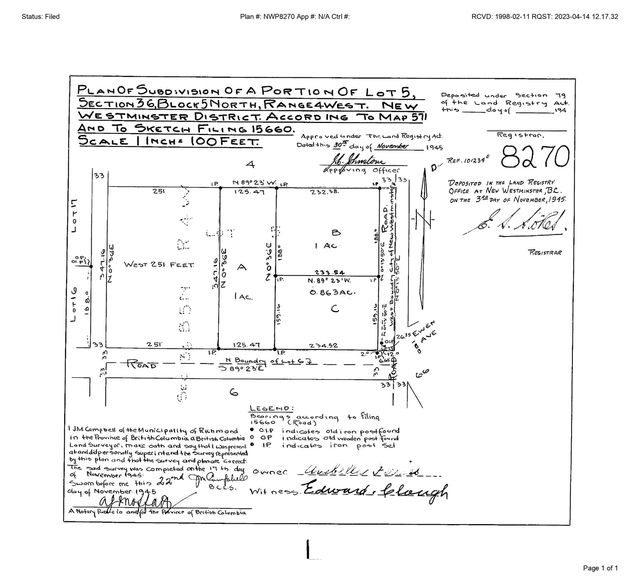 Status: Filed
Plan #: NWP8270 App #: N/A Ctrl #:
RCVD: 1998-02-11 RQST: 2023-04-14 12.17.32
PLAN OF SUBDIVISION OF A PORTION OF LOT 5,
SECTION 36, BLOCK 5 NORTH, RANGE 4 WEST. NEW
WESTMINSTER DISTRICT. ACCORDING TO MAP 571
AND TO SKETCH FILING 15660.
SCALE 1 INCH = 100 FEET.
Deposited under Section 79
of the Land Registry Act.
this day of 194
Registrar.
Approved under The Land Registry Act.
Dated this 30th day of November 1945
Approving Officer
REF. 101239E
8270
DEPOSITED IN THE LAND REGISTRY
OFFICE AT NEW WESTMINSTER, B.C.
ON THE 3rd DAY OF NOVEMBER, 1945.
REGISTRAR
4
33
251
I.P.
N 89°23'W.
125.47
I.P.
232.58.
33 33
D
N
LOT 17
547.16
N 0°36'E
WEST 251 FEET
SEC 36 B5N R4W
LOT
547.16
N 0°36'E
A
1 AC.
I.P.
388'
B
1 AC
233.54
N. 89° 23'W.
0.863 AC.
C
159.16
159.16
ROAD.
West Boundary City of New Westminster
LOT 16
188.0'
33
251
I.P.
125.47
I.P.
234.52
26.15
EWEN
AVE
60
33
33
ROAD
N Boundary of Lot 62
S 89°23'E
33
33 33
ROAD
66
6
LEGEND:
Bearings according to filing
15660 (Road)
OIP indicates old iron post found
OP indicates old wooden post found
IP indicates iron post set
I JM Campbell of the Municipality of Richmond
in the Province of British Columbia a British Columbia
Land Surveyor. make oath and say that I was present
at and did personally superintend the Survey represented
by this plan and that the survey and plan are Correct
The said survey was completed on the 17th day
of November 1945.
Sworn before me this 22nd
day of November 1945
JM Campbell
B.C.L.S.
A Notary Public in and for the Province of British Columbia
Owner
Witness. Edward. Clough
Page 1 of 1